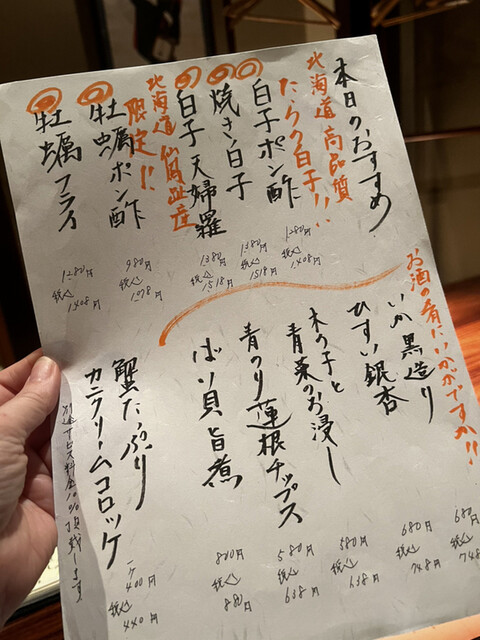 本日のおすすめ
北海道 高品質
たらの白子!!
白子ポン酢
1280円
税込
1408円
焼き白子
1380円
税込
1518円
白子 天婦羅
1380円
税込
1518円
北海道 仙鳳趾産
限定!!
牡蠣ポン酢
980円
税込
1078円
牡蠣フライ
1280円
税込
1408円
お酒の肴にいかがですか!!
いか黒造り
680円
税込
748
ひすい銀杏
680円
税込
748円
木の子と
青菜のお浸し
580円
税込
638円
青のり蓮根チップス
580円
税込
638円
ばい貝旨煮
800円
税込
880円
蟹たっぷり
カニクリームコロッケ
一ケ
400円
税込
440円
別途サービス料金10%頂戴します